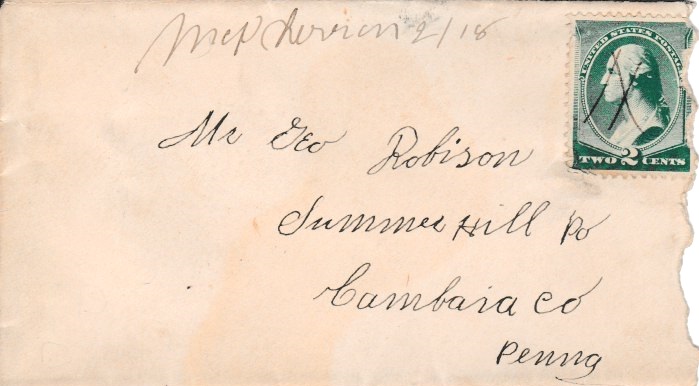 McPherron 2/18
UNITED STATES POSTAGE
TWO 2 CENTS
Mr Geo Robison
Summer Hill Po
Cambaia Co
Penna